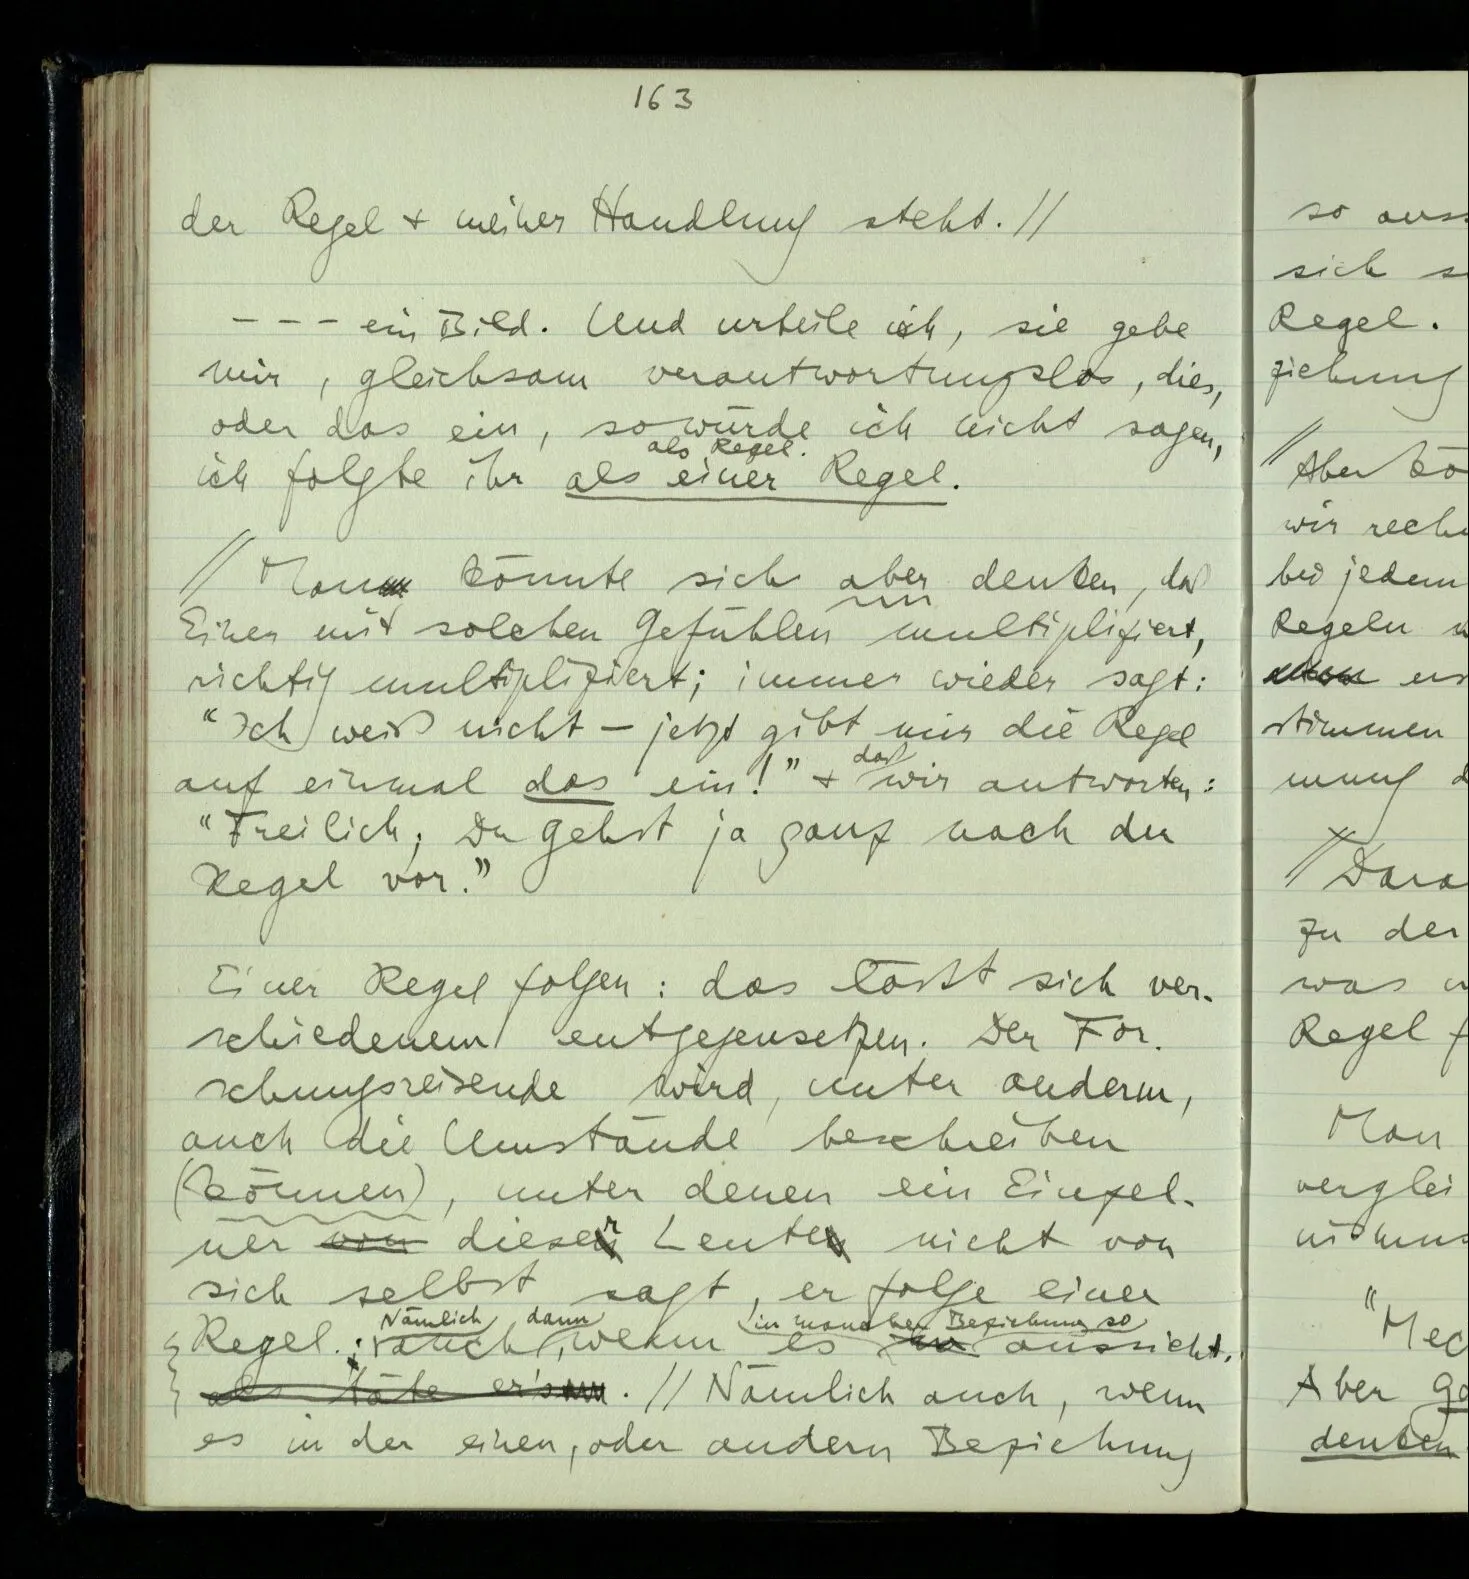 163
der Regel + meiner Handlung steht. //
– – – ein Bild. Und urteile ich, sie gebe
mir, gleichsam verantwortungslos, dies,
oder das ein, so würde ich nicht sagen,
als Regel.
ich folgte ihr als einer Regel.
// Man könnte sich aber denken, daß
Einer mit solchen Gefühlen multipliziert,
richtig multipliziert; immer wieder sagt:
"Ich weiß nicht – jetzt gibt mir die Regel
daß
auf einmal das ein!" + wir antworten:
"Freilich; Du gehst ja ganz nach der
Regel vor."
Einer Regel folgen: das läßt sich ver-
schiedenem entgegensetzen. Der For-
schungsreisende wird, unter anderm,
auch die Umstände beschreiben
(können), unter denen ein Einzel-
ner von dieser Leute nicht von
sich selbst sagt, er folge einer
Nämlich dann in mancher Beziehung so
Regel.; auch, wenn es so aussieht,
als täte er's. // Nämlich auch, wenn
es in der einen, oder andern Beziehung
so auss
sich s
Regel.
ziehung
// Aber kö
wir rech
bei jedem
Regeln
stimmen
mung d
// Dara
zu der
was
Regel f
Man
verglei
"Mec
Aber
denken